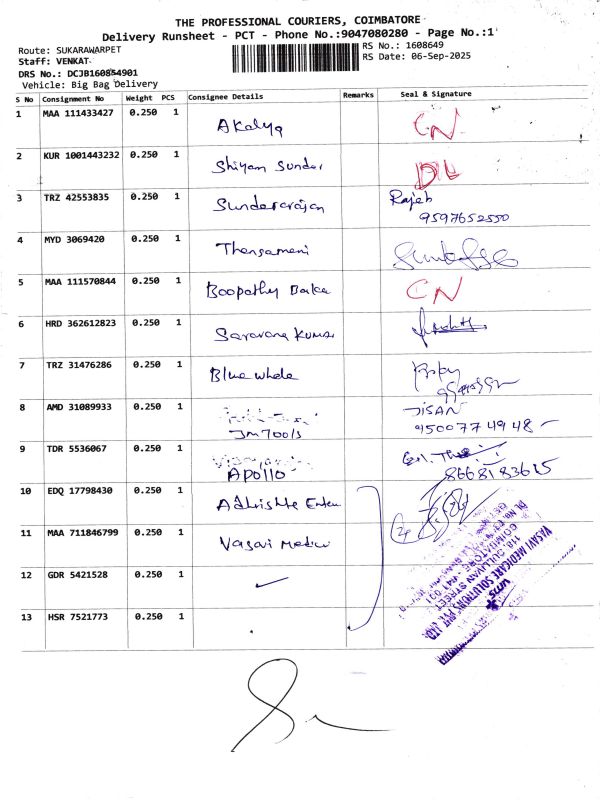 THE PROFESSIONAL COURIERS, COIMBATORE
Delivery Runsheet - PCT - Phone No.:9047080280 - Page No.:1
Route: SUKARAWARPET
RS No.: 1608649
Staff: VENKAT
RS Date: 06-Sep-2025
DRS No.: DCJB160854901
Vehicle: Big Bag Delivery
S No Consignment No Weight PCS Consignee Details Remarks Seal & Signature
1 MAA 111433427 0.250 1 Akalya CN
2 KUR 1001443232 0.250 1 Shiyam Sunder DL
3 TRZ 42553835 0.250 1 Sundararajan Rajeb
9597652550
4 MYD 3069420 0.250 1 Thangamani
5 MAA 111570844 0.250 1 Boopathy Baka CN
6 HRD 362612823 0.250 1 Saravana Kumar
7 TRZ 31476286 0.250 1 Blue whale
8 AMD 31089933 0.250 1 JISAN
Jm7001s 9500774948
9 TDR 5536067 0.250 1
Apollo
10 EDQ 17798430 0.250 1 Adhrishta Enter
11 MAA 711846799 0.250 1 Vasavi Medico
12 GDR 5421528 0.250 1
13 HSR 7521773 0.250 1
VASAVI MEDICARE SOLUTIONS PVT LTD
118, SULLIVAN STREET
COIMBATORE - 641 001